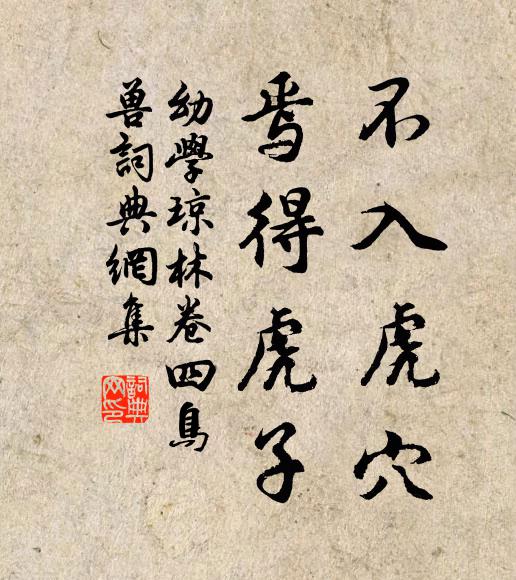 不入虎穴
焉得虎子
幼學琼林卷四鳥
兽詞典網集
詞典
网印